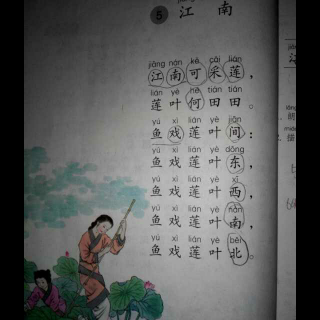 5 江南
jiāng nán kě cǎi lián
江南可采莲，
lián yè hé tián tián
莲叶何田田。
yú xì lián yè jiān
鱼戏莲叶间：
yú xì lián yè dōng
鱼戏莲叶东，
yú xì lián yè xī
鱼戏莲叶西，
yú xì lián yè nán
鱼戏莲叶南，
yú xì lián yè běi
鱼戏莲叶北。